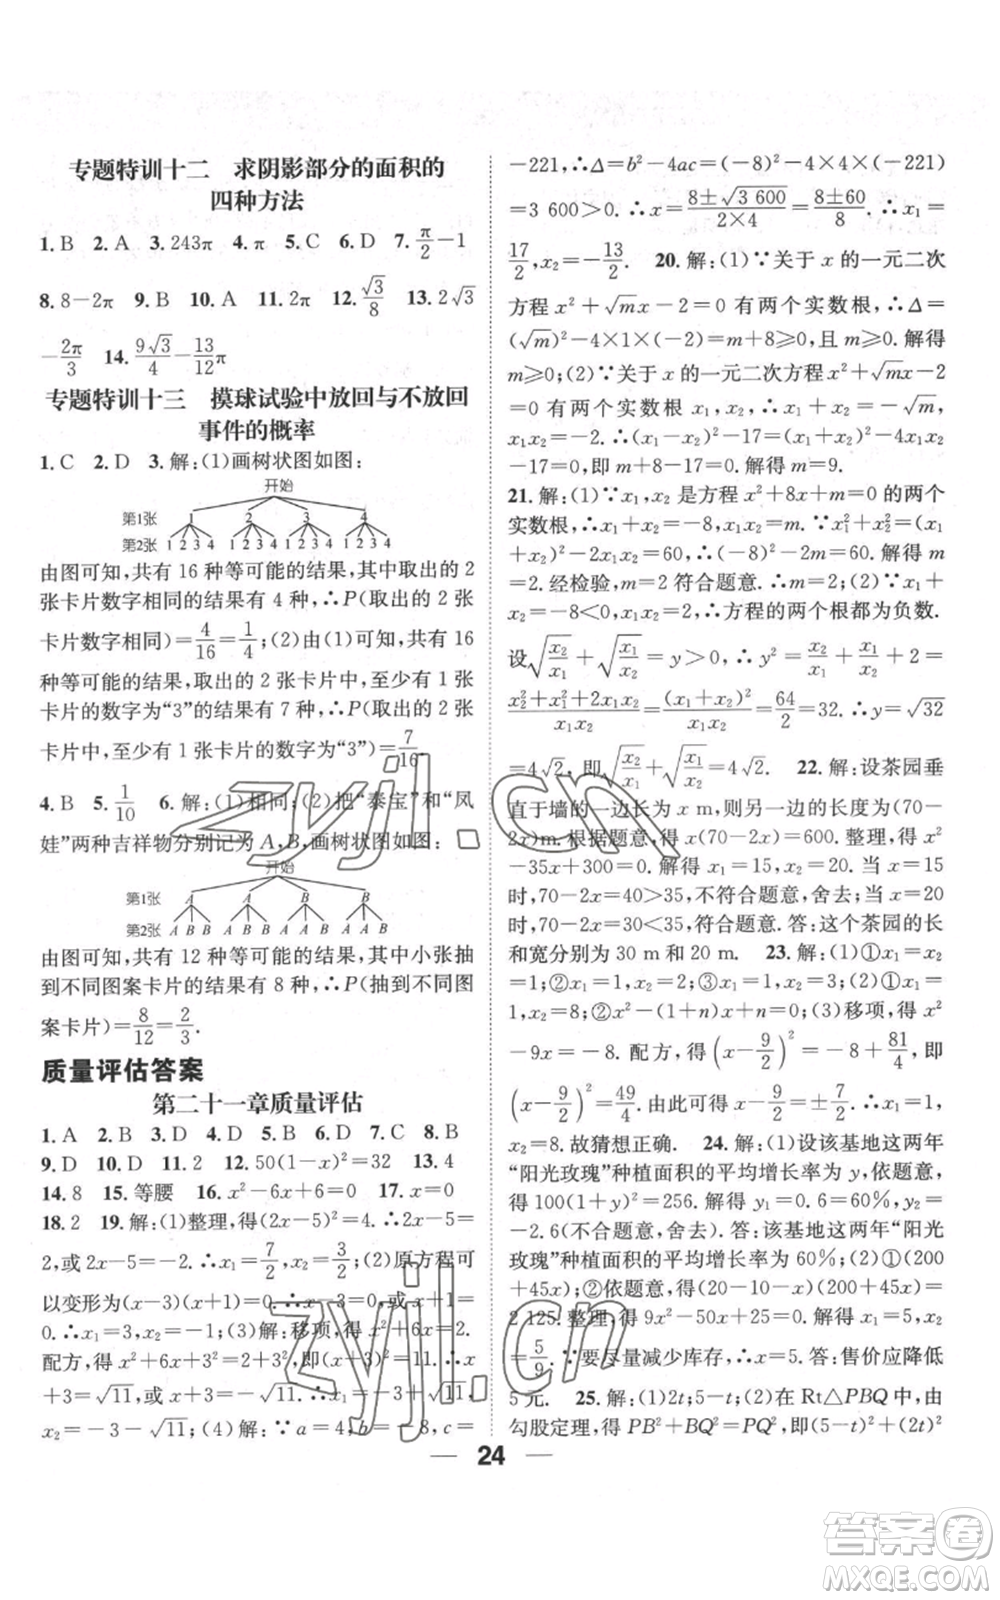 专题特训十二　求阴影部分的面积的
四种方法
1. B　2. A　3. 243π　4. π　5. C　6. D　7. π/2－1
8. 8－2π　9. B　10. A　11. 2π　12. √3/8　13. 2√3
－2π/3　14. 9√3/4－13/12π
专题特训十三　摸球试验中放回与不放回
事件的概率
1. C　2. D　3. 解：(1)画树状图如图：
开始
第1张　1　2　3　4
第2张　1 2 3 4　1 2 3 4　1 2 3 4　1 2 3 4
由图可知，共有 16 种等可能的结果，其中取出的 2
张卡片数字相同的结果有 4 种，∴P(取出的 2 张
卡片数字相同)＝4/16＝1/4；(2)由(1)可知，共有 16
种等可能的结果，取出的 2 张卡片中，至少有 1 张
卡片的数字为“3”的结果有 7 种，∴P(取出的 2 张
卡片中，至少有 1 张卡片的数字为“3”)＝7/16.
4. B　5. 1/10　6. 解：(1)相同；(2)把“泰宝”和“凤
娃”两种吉祥物分别记为 A，B，画树状图如图：
开始
第1张　A　A　B　B
第2张　A B B　A B B　A A B　A A B
由图可知，共有 12 种等可能的结果，其中小张抽
到不同图案卡片的结果有 8 种，∴P(抽到不同图
案卡片)＝8/12＝2/3.
质量评估答案
第二十一章质量评估
1. A　2. B　3. D　4. D　5. A　6. C　7. C　8. B
9. D　10. D　11. 2　12. 50(1－x)²＝32　13. 4
14. 8　15. 等腰　16. x²－6x＋6＝0　17. x＝0
18. 2　19. 解：(1)整理，得(2x－5)²＝4. ∴2x－5＝
2，或2x－5＝－2. ∴x₁＝7/2，x₂＝3/2；(2)原方程可
以变形为(x－3)(x＋1)＝0. ∴x－3＝0或x＋1＝
0. ∴x₁＝3，x₂＝－1；(3)解：移项，得 x²＋6x＝2.
配方，得 x²＋6x＋9＝2＋9，即(x＋3)²＝11. ∴x
＋3＝√11，或x＋3＝－√11. ∴x₁＝－3＋√11，
x₂＝－3－√11；(4)解：∵a＝4，b＝－8，c＝
－221，∴Δ＝b²－4ac＝(－8)²－4×4×(－221)
＝3 600＞0. ∴x＝8±√3 600/2×4＝8±60/8. ∴x₁＝
17/2，x₂＝－13/2.　20. 解：(1)∵关于 x 的一元二次
方程 x²＋√m x－2＝0 有两个实数根，∴Δ＝
(√m)²－4×1×(－2)＝m＋8≥0，且m≥0. 解得
m≥0；(2)∵关于 x 的一元二次方程 x²＋√m x－2＝
0 有两个实数根 x₁，x₂，∴x₁＋x₂＝－√m，
x₁x₂＝－2. ∴(x₁－x₂)²－17＝(x₁＋x₂)²－4x₁x₂
－17＝0，即 m＋8－17＝0. 解得 m＝9.
21. 解：(1)∵x₁，x₂ 是方程 x²＋8x＋m＝0 的两个
实数根，∴x₁＋x₂＝－8，x₁x₂＝m. ∵x₁²＋x₂²＝(x₁
＋x₂)²－2x₁x₂＝60，∴64－2m＝60. 解得 m
＝2. 经检验，m＝2 符合题意. ∴m＝2；(2)∵x₁＋
x₂＝－8＜0，x₁x₂＝2，∴方程的两个根都为负数.
设√(x₂/x₁)＋√(x₁/x₂)＝y＞0，∴y²＝x₂/x₁＋x₁/x₂＋2＝
x₂²＋x₁²＋2x₁x₂/x₁x₂＝(x₁＋x₂)²/x₁x₂＝64/2＝32. ∴y＝√32
＝4√2，即√(x₂/x₁)＋√(x₁/x₂)＝4√2.　22. 解：设茶园垂
直于墙的一边长为 x m，则另一边的长度为(70－
2x)m. 根据题意，得 x(70－2x)＝600. 整理，得 x²
－35x＋300＝0. 解得 x₁＝15，x₂＝20. 当 x＝15
时，70－2x＝40＞35，不符合题意，舍去；当 x＝20
时，70－2x＝30＜35，符合题意. 答：这个茶园的长
和宽分别为 30 m 和 20 m.　23. 解：(1)①x₁＝x₂
＝1；②x₁＝1，x₂＝2；③x₁＝1，x₂＝3；(2)①x₁＝
1，x₂＝n；②x²－(1＋n)x＋n＝0；(3)移项，得 x²
－9x＝－8. 配方，得(x－9/2)²＝－8＋81/4，即
(x－9/2)²＝49/4. ∴x－9/2＝±7/2. ∴x₁＝1，
x₂＝8. 故猜想正确.　24. 解：(1)设该基地这两年
“阳光玫瑰”种植面积的平均增长率为 y，依题意，
得 100(1＋y)²＝256. 解得 y₁＝0.6＝60%，y₂＝
－2.6(不合题意，舍去). 答：该基地这两年“阳光
玫瑰”种植面积的平均增长率为 60%；(2)①(200
＋45x)；②依题意，得(20－10－x)(200＋45x)＝
2 125. 整理，得 9x²－50x＋25＝0. 解得 x₁＝5，x₂
＝5/9. ∵要尽量减少库存，∴x＝5. 答：售价应降低
5 元.　25. 解：(1)2t；5－t；(2)在 Rt△PBQ 中，由
勾股定理，得 PB²＋BQ²＝PQ²，即(5－t)²＋(2t)²
24
zyjl.cn
zyjl.cn
答案卷
MXQE.COM